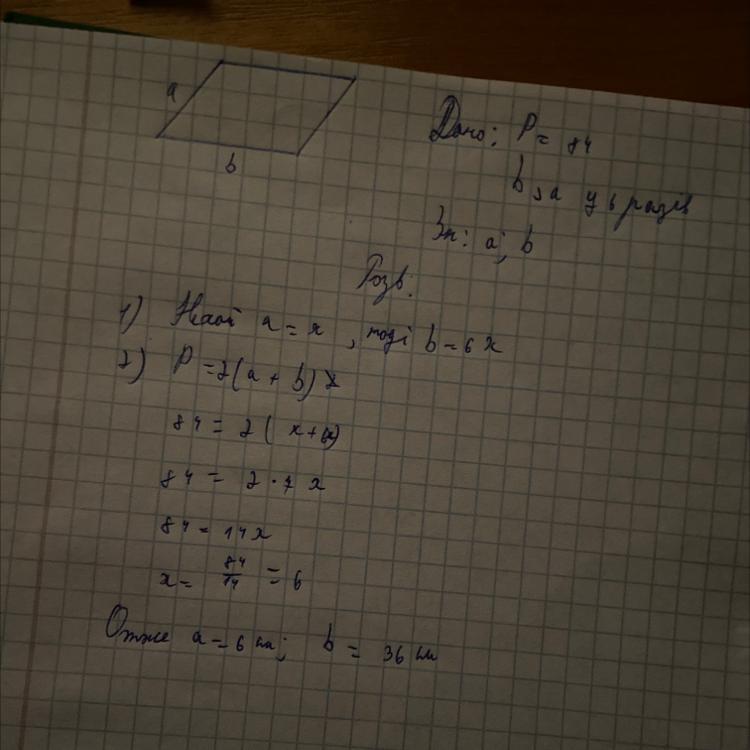 a
b
Дано: P = 84
b > a у 6 разів
Зн: a; b
Розв.
1) Нехай a = x, тоді b = 6x
2) P = 2(a + b)
84 = 2(x+6x)
84 = 2 · 7x
84 = 14x
x = 84/14 = 6
Отже a = 6 см; b = 36 см